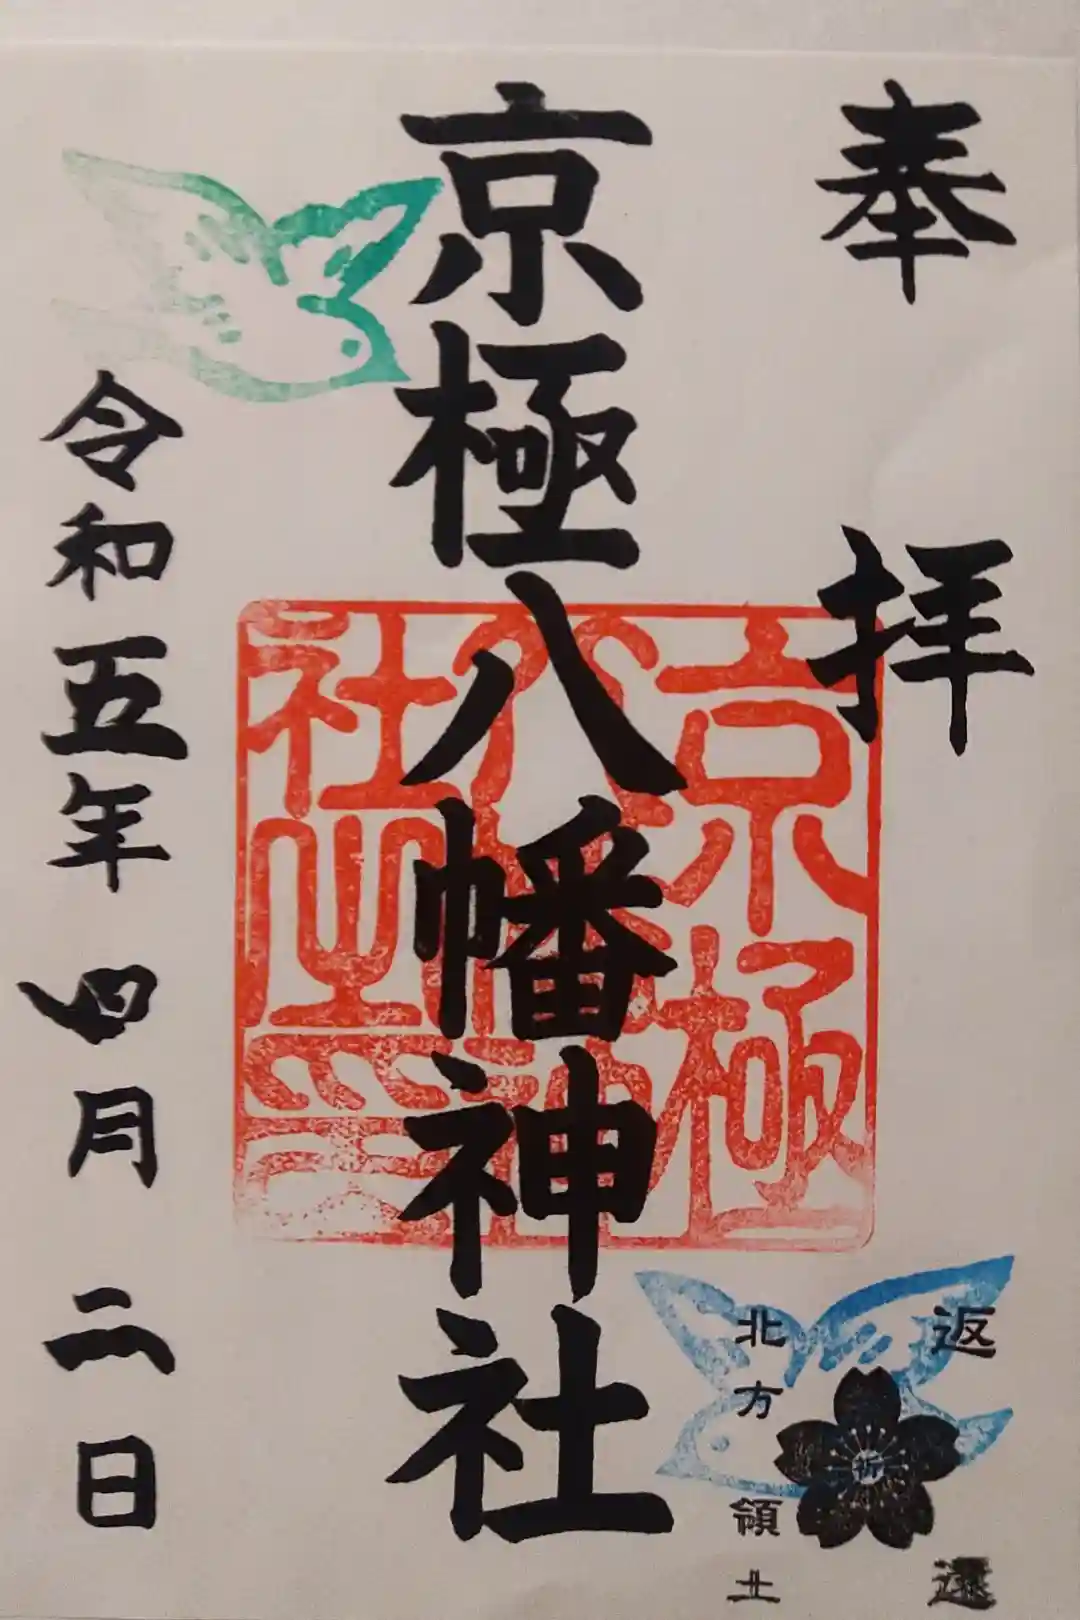 奉拝
京極八幡神社
令和五年四月二日
京極
八幡神
社之印
返還
祈
北方領土